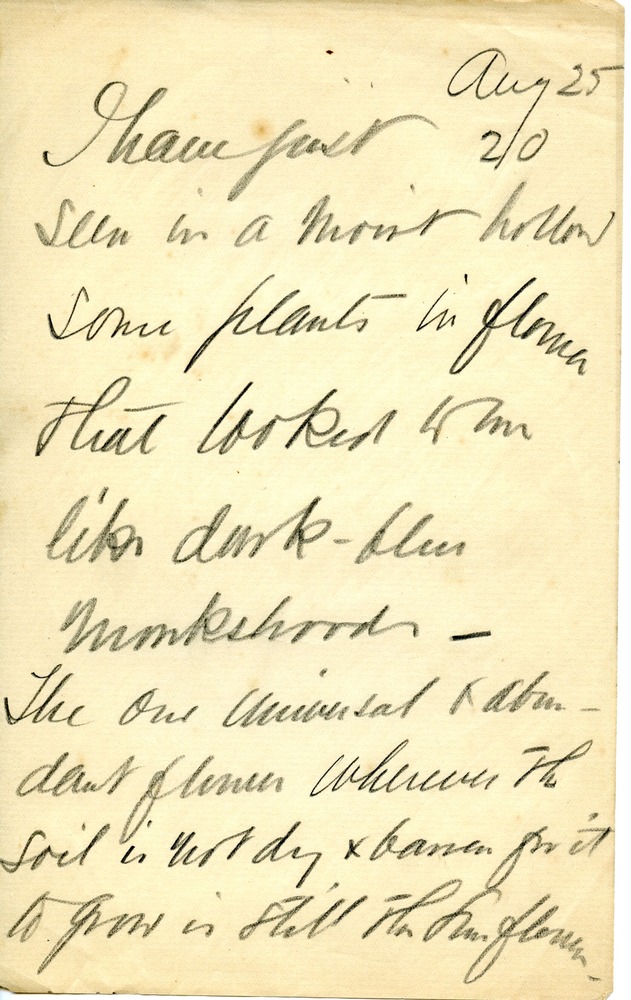 Aug 25
I have just 20
seen in a moist hollow
some plants in flower
that looked to me
like dark-blue
Monkshood -
The one universal & abun-
dant flower wherever the
soil is not dry & barren for it
to grow is still the Sunflower.